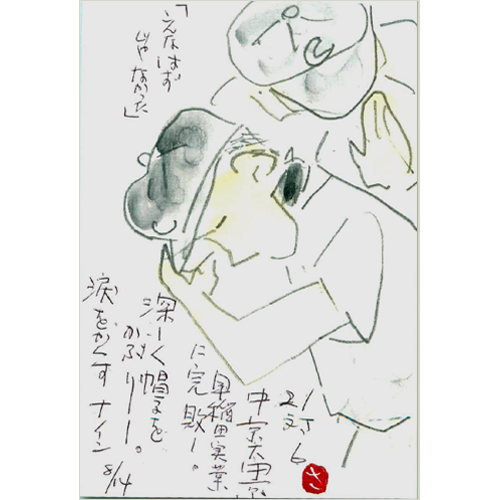 「こんなはず
じゃなかった」
21対6
中京大中京
早稲田実業
に完敗ー。
深ーく帽子を
かぶりー。
涙をかくすナイン
8/14
さ